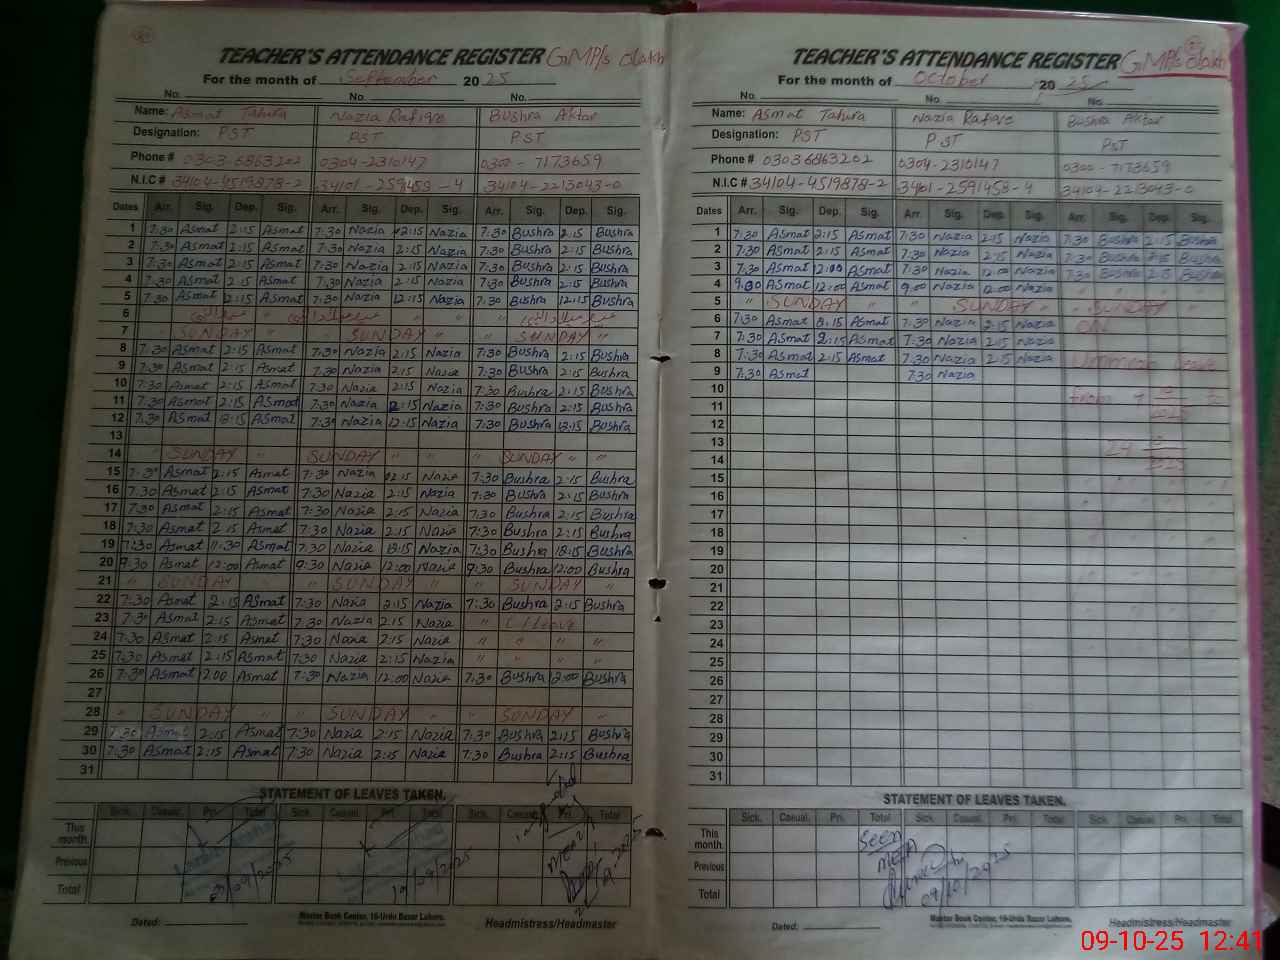 TEACHER'S ATTENDANCE REGISTER GMP/s Olakh
For the month of September 2025
No. No. No.
Name: Asmat Tahira Nazia Rafiqe Bushra Aktar
Designation: PST PST PST
Phone # 0303 6863202 0304-2310147 0300-7173659
N.I.C # 34104-4519878-2 34101-2591458-4 34104-2213043-0
Dates Arr. Sig. Dep. Sig. Arr. Sig. Dep. Sig. Arr. Sig. Dep. Sig.
1 7:30 Asmat 2:15 Asmat 7:30 Nazia 2:15 Nazia 7:30 Bushra 2:15 Bushra
2 7:30 Asmat 2:15 Asmat 7:30 Nazia 2:15 Nazia 7:30 Bushra 2:15 Bushra
3 7:30 Asmat 2:15 Asmat 7:30 Nazia 2:15 Nazia 7:30 Bushra 2:15 Bushra
4 7:30 Asmat 2:15 Asmat 7:30 Nazia 2:15 Nazia 7:30 Bushra 2:15 Bushra
5 7:30 Asmat 2:15 Asmat 7:30 Nazia 12:15 Nazia 7:30 Bushra 12:15 Bushra
6
7 " SUNDAY " " SUNDAY " " SUNDAY "
8 7:30 Asmat 2:15 Asmat 7:30 Nazia 2:15 Nazia 7:30 Bushra 2:15 Bushra
9 7:30 Asmat 2:15 Asmat 7:30 Nazia 2:15 Nazia 7:30 Bushra 2:15 Bushra
10 7:30 Asmat 2:15 Asmat 7:30 Nazia 2:15 Nazia 7:30 Bushra 2:15 Bushra
11 7:30 Asmat 2:15 Asmat 7:30 Nazia 2:15 Nazia 7:30 Bushra 2:15 Bushra
12 7:30 Asmat 12:15 Asmat 7:30 Nazia 12:15 Nazia 7:30 Bushra 12:15 Bushra
13
14 " SUNDAY " " SUNDAY " " SUNDAY " "
15 7:30 Asmat 2:15 Asmat 7:30 Nazia 2:15 Nazia 7:30 Bushra 2:15 Bushra
16 7:30 Asmat 2:15 Asmat 7:30 Nazia 2:15 Nazia 7:30 Bushra 2:15 Bushra
17 7:30 Asmat 2:15 Asmat 7:30 Nazia 2:15 Nazia 7:30 Bushra 2:15 Bushra
18 7:30 Asmat 2:15 Asmat 7:30 Nazia 2:15 Nazia 7:30 Bushra 2:15 Bushra
19 7:30 Asmat 11:30 Asmat 7:30 Nazia 12:15 Nazia 7:30 Bushra 12:15 Bushra
20 9:30 Asmat 12:00 Asmat 9:30 Nazia 12:00 Nazia 9:30 Bushra 12:00 Bushra
21 " SUNDAY " " SUNDAY " " SUNDAY "
22 7:30 Asmat 2:15 Asmat 7:30 Nazia 2:15 Nazia 7:30 Bushra 2:15 Bushra
23 7:30 Asmat 2:15 Asmat 7:30 Nazia 2:15 Nazia " C/leave "
24 7:30 Asmat 2:15 Asmat 7:30 Nazia 2:15 Nazia " " " "
25 7:30 Asmat 2:15 Asmat 7:30 Nazia 2:15 Nazia " " " "
26 7:30 Asmat 12:00 Asmat 7:30 Nazia 12:00 Nazia 7:30 Bushra 12:00 Bushra
27
28 " SUNDAY " " SUNDAY " " SUNDAY "
29 7:30 Asmat 2:15 Asmat 7:30 Nazia 2:15 Nazia 7:30 Bushra 2:15 Bushra
30 7:30 Asmat 2:15 Asmat 7:30 Nazia 2:15 Nazia 7:30 Bushra 2:15 Bushra
31
STATEMENT OF LEAVES TAKEN.
Sick. Casual. Pri. Total Sick. Casual. Pri. Total Sick. Casual. Pri. Total
This month.
Previous
Total
Dated: Master Book Center, 16-Urdu Bazar Lahore. Headmistress/Headmaster
TEACHER'S ATTENDANCE REGISTER GMP/s Olakh
For the month of October 2025
No. No. No.
Name: Asmat Tahira Nazia Rafiqe Bushra Aktar
Designation: PST PST PST
Phone # 03036863202 0304-2310147 0300-7173659
N.I.C # 34104-4519878-2 34101-2591458-4 34104-2213043-0
Dates Arr. Sig. Dep. Sig. Arr. Sig. Dep. Sig. Arr. Sig. Dep. Sig.
1 7:30 Asmat 2:15 Asmat 7:30 Nazia 2:15 Nazia 7:30 Bushra 2:15 Bushra
2 7:30 Asmat 2:15 Asmat 7:30 Nazia 2:15 Nazia 7:30 Bushra 2:15 Bushra
3 7:30 Asmat 12:00 Asmat 7:30 Nazia 12:00 Nazia 7:30 Bushra 2:15 Bushra
4 9:30 Asmat 12:00 Asmat 9:00 Nazia 12:00 Nazia " " " "
5 " SUNDAY " " SUNDAY " " SUNDAY "
6 7:30 Asmat 2:15 Asmat 7:30 Nazia 2:15 Nazia ON
7 7:30 Asmat 2:15 Asmat 7:30 Nazia 2:15 Nazia
8 7:30 Asmat 2:15 Asmat 7:30 Nazia 2:15 Nazia Ummrah leave
9 7:30 Asmat 7:30 Nazia
10 From
11
12
13
14
15
16
17
18
19
20
21
22
23
24
25
26
27
28
29
30
31
STATEMENT OF LEAVES TAKEN.
Sick. Casual. Pri. Total Sick. Casual. Pri. Total Sick. Casual. Pri. Total
This month. Seen
Previous
Total 09/10/2025
Dated: Master Book Center, 16-Urdu Bazar Lahore. Headmistress/Headmaster
09-10-25 12:41